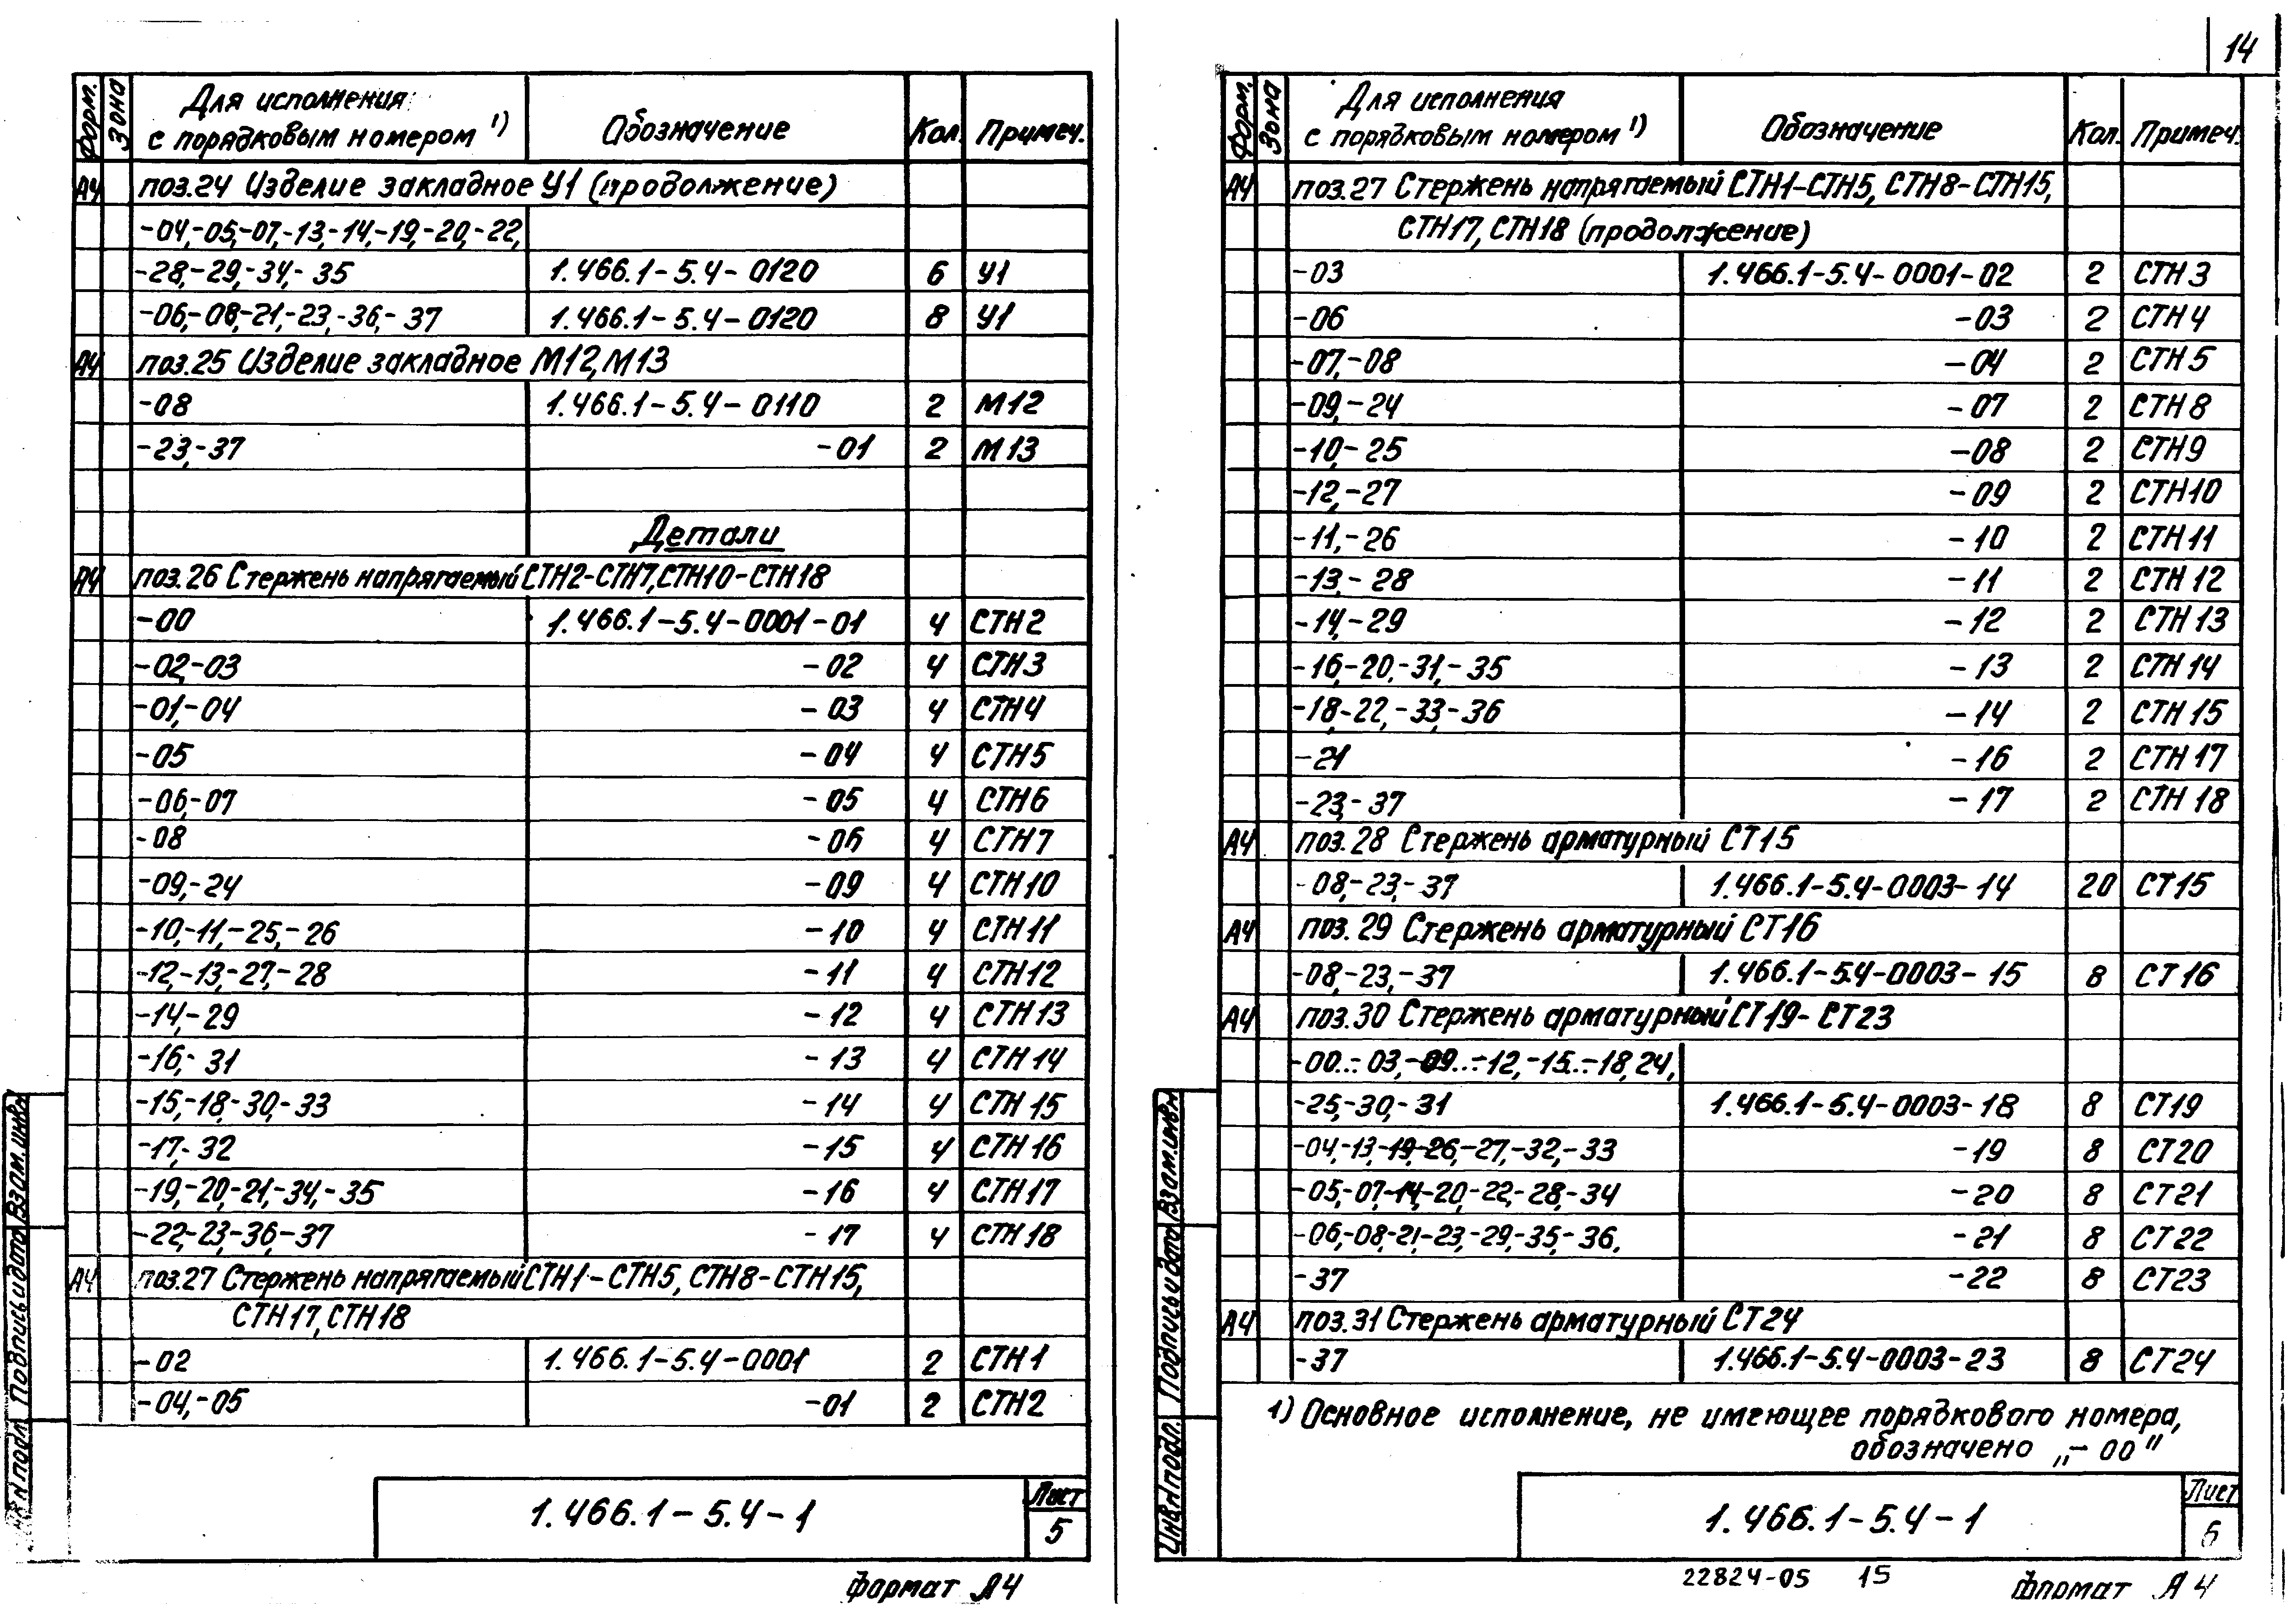 14
Форм.
Зона
Для исполнения
с порядковым номером 1)
Обозначение
Кол.
Примеч.
А4 поз.24 Изделие закладное У1 (продолжение)
-04,-05,-07,-13,-14,-19,-20,-22,
-28,-29,-34,-35 1.466.1-5.4-0120 6 У1
-06,-08,-21,-23,-36,-37 1.466.1-5.4-0120 8 У1
А4 поз.25 Изделие закладное М12, М13
-08 1.466.1-5.4-0110 2 М12
-23,-37 -01 2 М13
Детали
А4 поз.26 Стержень напрягаемый СТН2-СТН7, СТН10-СТН18
-00 1.466.1-5.4-0001-01 4 СТН2
-02,-03 -02 4 СТН3
-01,-04 -03 4 СТН4
-05 -04 4 СТН5
-06,-07 -05 4 СТН6
-08 -06 4 СТН7
-09,-24 -09 4 СТН10
-10,-11,-25,-26 -10 4 СТН11
-12,-13,-27,-28 -11 4 СТН12
-14,-29 -12 4 СТН13
-16,-31 -13 4 СТН14
-15,-18,-30,-33 -14 4 СТН15
-17,-32 -15 4 СТН16
-19,-20,-21,-34,-35 -16 4 СТН17
-22,-23,-36,-37 -17 4 СТН18
А4 поз.27 Стержень напрягаемый СТН1-СТН5, СТН8-СТН15,
СТН17, СТН18
-02 1.466.1-5.4-0001 2 СТН1
-04,-05 -01 2 СТН2
Взам.инв.№
Подпись и дата
№ подл.
1.466.1-5.4-1
Лист
5
Формат А4
Форм.
Зона
Для исполнения
с порядковым номером 1)
Обозначение
Кол.
Примеч.
А4 поз.27 Стержень напрягаемый СТН1-СТН5, СТН8-СТН15,
СТН17, СТН18 (продолжение)
-03 1.466.1-5.4-0001-02 2 СТН3
-06 -03 2 СТН4
-07,-08 -04 2 СТН5
-09,-24 -07 2 СТН8
-10,-25 -08 2 СТН9
-12,-27 -09 2 СТН10
-11,-26 -10 2 СТН11
-13,-28 -11 2 СТН12
-14,-29 -12 2 СТН13
-16,-20,-31,-35 -13 2 СТН14
-18,-22,-33,-36 -14 2 СТН15
-21 -16 2 СТН17
-23,-37 -17 2 СТН18
А4 поз.28 Стержень арматурный СТ15
-08,-23,-37 1.466.1-5.4-0003-14 20 СТ15
А4 поз.29 Стержень арматурный СТ16
-08,-23,-37 1.466.1-5.4-0003-15 8 СТ16
А4 поз.30 Стержень арматурный СТ19-СТ23
-00...-03,-09...-12,-15...-18,24,
-25,-30,-31 1.466.1-5.4-0003-18 8 СТ19
-04,-13,-19,-26,-27,-32,-33 -19 8 СТ20
-05,-07,-14,-20,-22,-28,-34 -20 8 СТ21
-06,-08,-21,-23,-29,-35,-36, -21 8 СТ22
-37 -22 8 СТ23
А4 поз.31 Стержень арматурный СТ24
-37 1.466.1-5.4-0003-23 8 СТ24
1) Основное исполнение, не имеющее порядкового номера,
обозначено „-00"
Взам.инв.№
Подпись и дата
Инв.№ подл.
1.466.1-5.4-1
Лист
6
22824-05 15
Формат А4